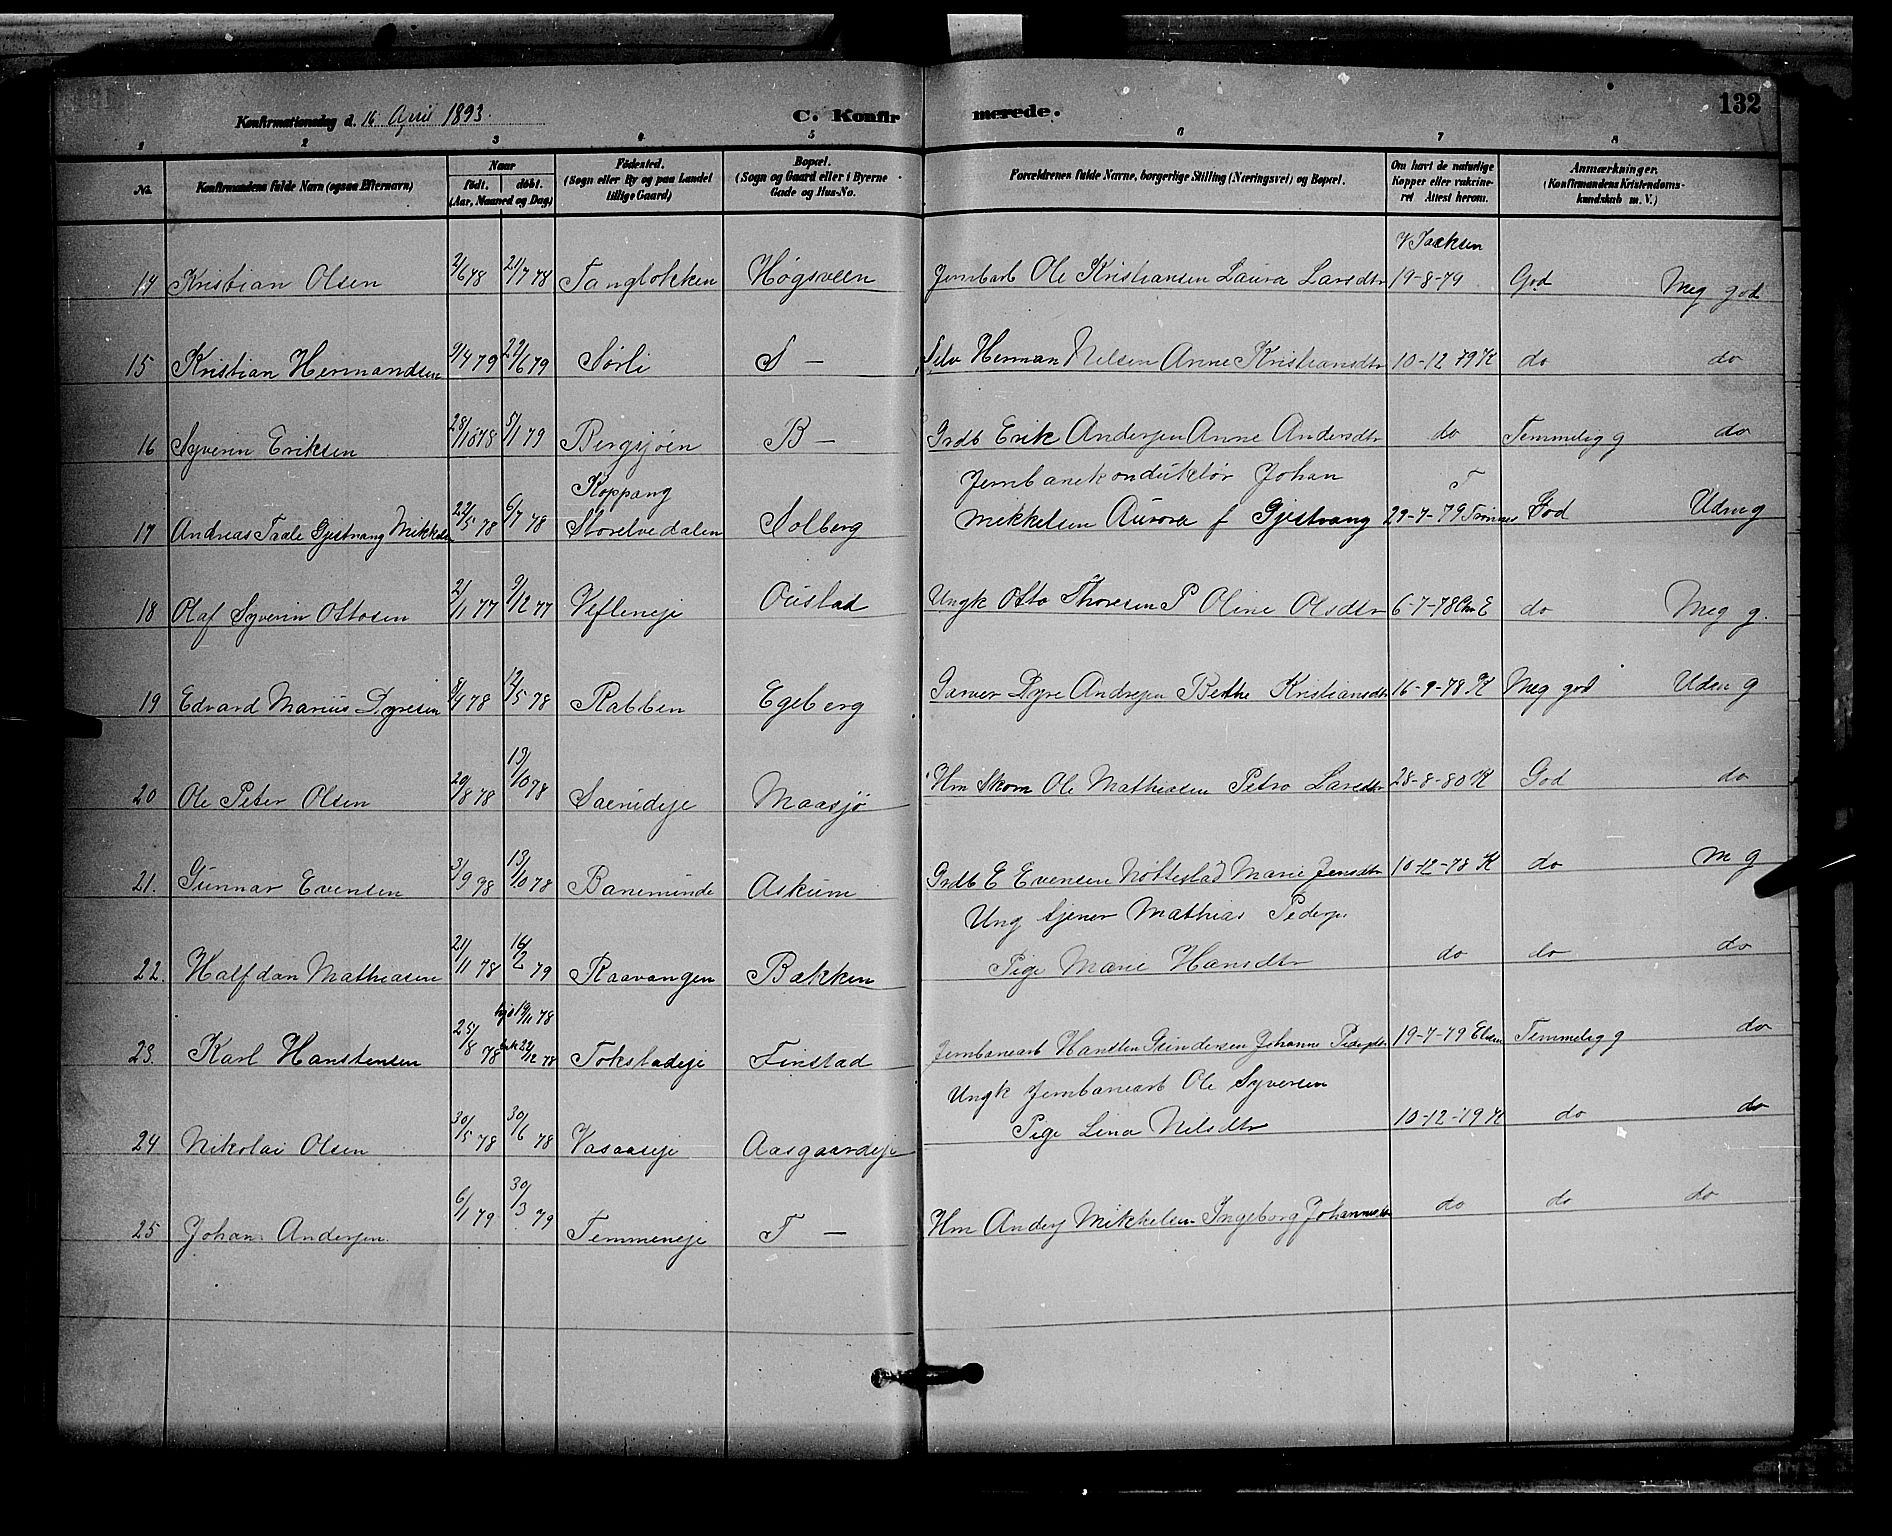 132
Konfirmationsdag d. 16 April 1893.
C. Konfirmerede.
1 2 3 4 5 6 7 8
No. Konfirmandens fulde Navn (ogsaa Efternavn) Naar født. døbt. (Aar, Maaned og Dag) Fødested. (Sogn eller By og paa Landet tillige Gaard) Bopæl. (Sogn og Gaard eller i Byerne Gade og Hus-No. Forældrenes fulde Navne, borgerlige Stilling (Næringsvei) og Bopæl. Om havt de naturlige Kopper eller vakcineret Attest herom. Anmærkninger. (Konfirmandens Kristendomskundskab m. V.)
V Isaksen
14 Kristian Olsen 2/6 78 21/7 78 Tangløkken Høgsveen Jernbarb Ole Kristiansen Laura Larsdtr 19-8-79 God Meg god
15 Kristian Hermandsen 9/4 79 22/6 79 Sørli S — Selv Herman Nilsen Anne Kristiansdtr 10-12 79 K do do
16 Syverin Eriksen 28/10 78 5/1 79 Bergsjøen B — Grdb Erik Andersen Anne Andersdtr do Temmelig g do
Koppang Jernbanekonduktør Johan
17 Andreas Taale Gjestvang Mikkelsen 22/5 78 6/7 78 Storelvedalen Solberg Mikkelsen Aurora f Gjestvang 29-7-79 God Uden g
18 Olaf Syverin Ottosen 2/11 77 9/12 77 Vefleneje Oustad Ungk Otto Thoresen P Oline Olsdtr 6-7-78 do Meg g.
19 Edvard Marius Dyresen 8/4 78 12/5 78 Rabben Egeberg Garver Dyre Andersen Berthe Kristiansdtr 16-9-78 K Meg god Uden g
20 Ole Peter Olsen 20/8 78 13/10 78 Maasjø Hm Skom Ole Mathiasen Petra Larsdtr 28-8-80 K God do
21. Gunnar Evensen 3/9 98 13/10 78 Banemunde Askum Grdb E Evensen Nøttestad Marie Jensdtr 10-12-78 K do M g
Ung tjener Mathias Peders
22. Halfdan Mathiasen 21/11 78 16/2 79 Raavangen Bakken Pige Marie Hansdtr do do do
23. Karl Hanstensen 25/8 78 hjd 19/11 78 22/12 78 Tokstadeje Finstad Jernbanearb Hansten Gundersen Johanne Pedersdtr 19-7-79 Temmelig g do
Ungk Jernbanearb Ole Syversen
24 Nikolai Olsen 30/5 78 30/6 78 Vasaaseje Aasgaardeje Pige Lina Nilsdtr 10-12-79 K do do
25 Johan Andersen 6/1 79 30/3 79 Temmeneje T — Hm Anders Mikkelsen Ingeborg Johannesdtr do do do